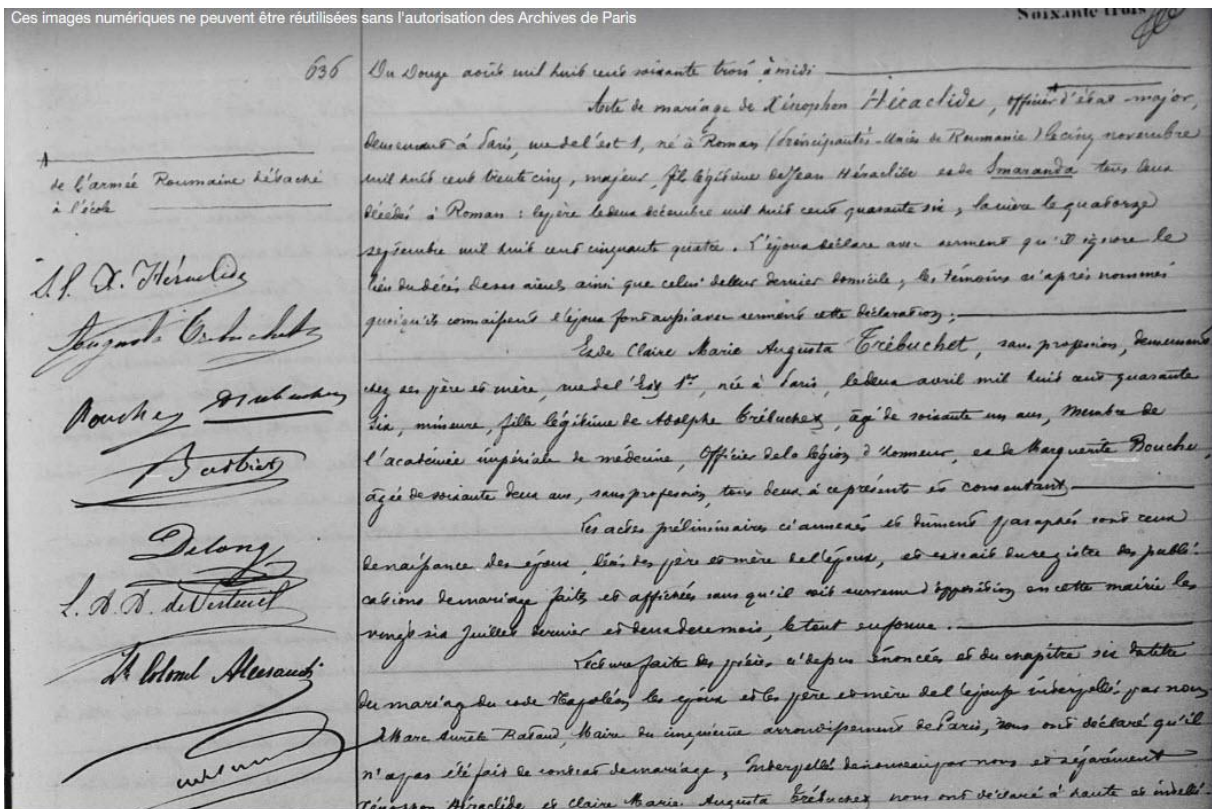 Ces images numériques ne peuvent être réutilisées sans l'autorisation des Archives de Paris
Soixante trois
636
Du Douze août mil huit cent soixante trois à midi
Acte de mariage de Xénophon Héraclide, officier d'état-major,
demeurant à Paris, rue de l'est 1, né à Roman (Principautés-Unies de Roumanie) le cinq novembre
mil huit cent trente cinq, majeur, fils légitime de Jean Héraclide et de Smaranda tous deux
décédés à Roman : le père le deux décembre mil huit cent quarante six, la mère le quatorze
septembre mil huit cent cinquante quatre. L'époux déclare avec serment qu'il ignore le
lieu du décès de ses aïeuls ainsi que celui de leur dernier domicile, les témoins ci après nommés
quoiqu'ils connaissent l'époux font aussi avec serment cette déclaration.
Et de Claire Marie Augusta Trébuchet, sans profession, demeurant
chez ses père et mère, rue de l'Est 1er, née à Paris, le deux avril mil huit cent quarante
six, mineure, fille légitime de Adolphe Trébuchet, âgé de soixante un ans, Membre de
l'académie impériale de médecine, Officier de la légion d'honneur, et de Marguerite Bouché,
âgée de soixante deux ans, sans profession, tous deux à ce présents et consentant
Les actes préliminaires ci annexés et dûment paraphés sont ceux
de naissance des époux, décès des père et mère de l'époux, et extrait du registre des publi-
cations de mariage faites et affichées sans qu'il soit survenu d'opposition en cette mairie les
vingt six Juillet dernier et deux de ce mois, le tout en forme.
Lecture faite des pièces ci dessus énoncées et du chapitre six du titre
du mariage du code Napoléon les époux et les père et mère de l'épouse interpellés par nous
Marc Aurèle Rataud, Maire du cinquième arrondissement de Paris, nous ont déclaré qu'il
n'a pas été fait de contrat de mariage, Interpellés de nouveau par nous et séparément
Xénophon Héraclide et Claire Marie Augusta Trébuchet nous ont déclaré à haute et intelli-
de l'armée Roumaine détaché
à l'école
X. Héraclide
Augusta Trébuchet
Bouché Trébuchet
Barbier
Delong
L. D. D. de Verteuil
Lt Colonel Alecsandri